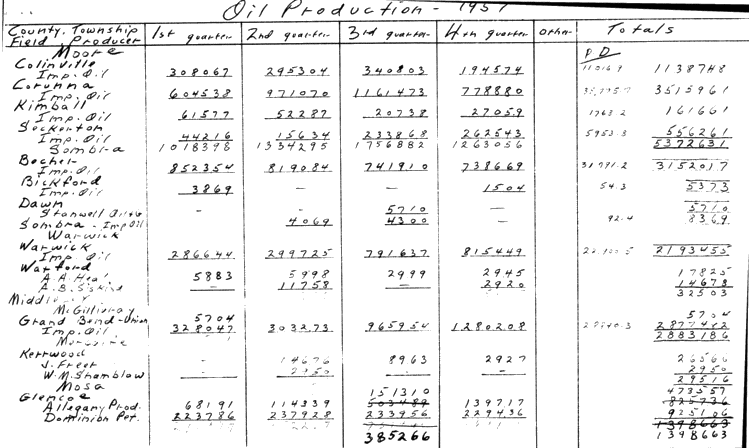 Oil Production - 1957
County, Township Field & Producer 1st quarter 2nd quarter 3rd quarter 4th quarter Other Totals
Moore P.D
Colinville
Imp. Oil 308067 295304 340803 194574 1138748
Corunna
Imp. Oil 604538 971070 1161473 778880 3515961
Kimball
Imp. Oil 61577 52287 20738 27059 1763.2 161661
Seckerton
Imp. Oil 44216 15634 233868 262543 5953.3 556261
Sombra 1018398 1334295 1756882 1263056 5372631
Becher
Imp. Oil 852354 819084 741910 738669 31791.2 3152017
Bickford
Imp. Oil 3869 - - 1504 54.3 5373
Dawn
Stanwell Oil & G - - 5710 - 5710
Sombra - Imp Oil 4069 4300 - 92.4 8369
Warwick
Warwick
Imp Oil 286644 299725 791637 815449 2193455
Watford
A.H. 5883 5998 2999 2945 17825
A.B. Siskind - 11758 - 2920 14678
32503
McGillivray
Grand Bend - Union 5704 5704
Imp. Oil 328047 303273 965954 1280208 2877482
2883186
Kerrwood
J. Freer - 14676 8963 2927 26566
W.M. Shamblow - 2950 - - 2950
Mosa 29516
Glencoe 151310 473557
503489 825736
Allegany Prod. 68191 114339 139717 925106
Dominion Pet. 223786 237928 233956 229436 1398663
385266 1398663